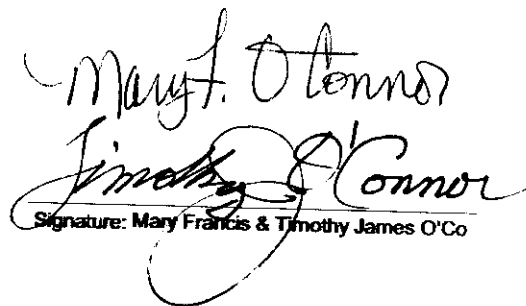 Mary F. O'Connor
Timothy J O'Connor
Signature: Mary Francis & Timothy James O'Co